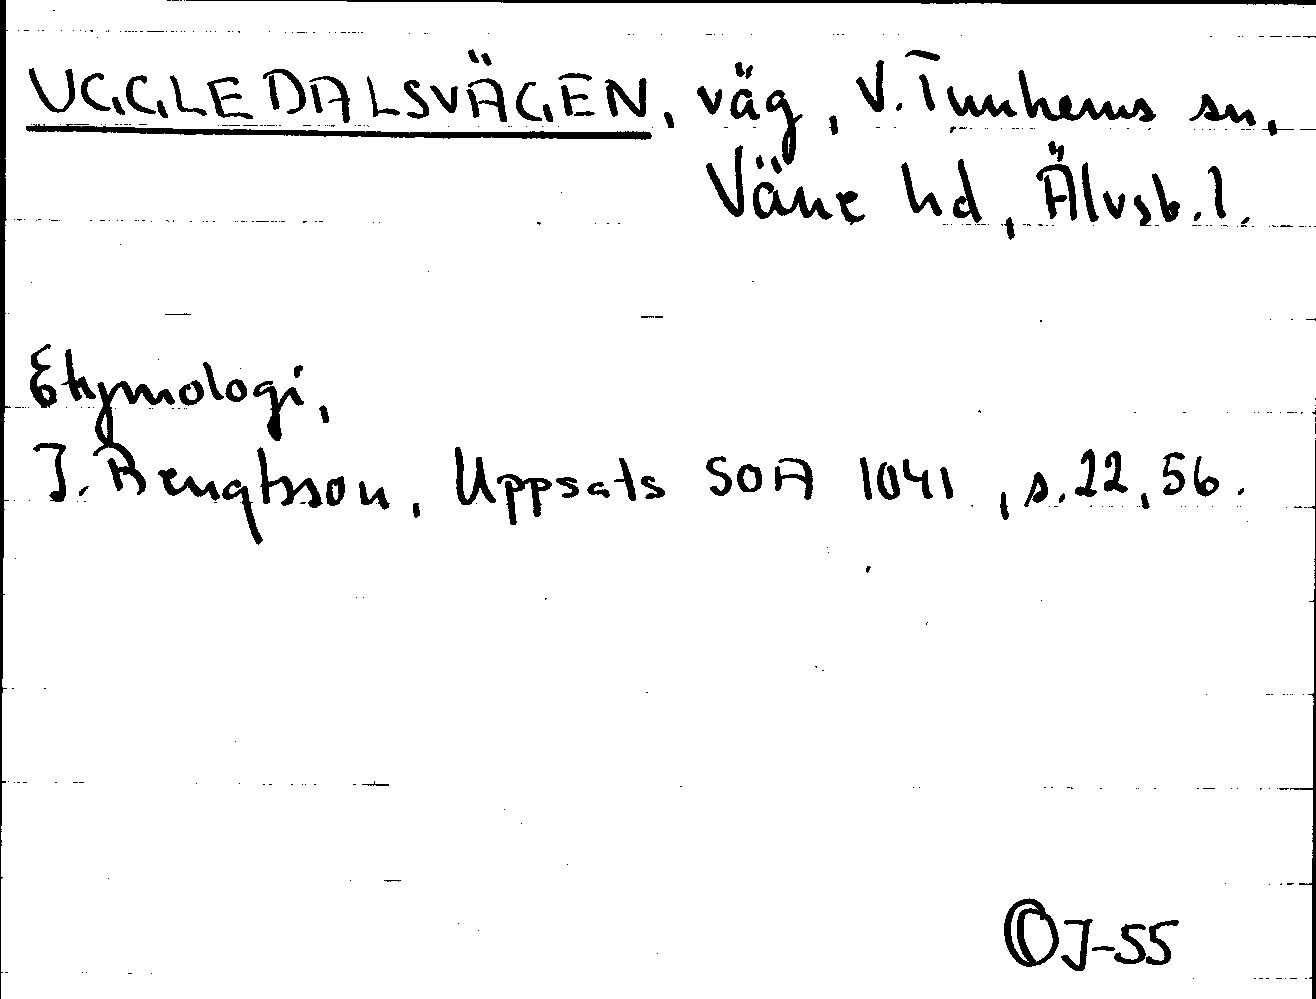 UGGLEDALSVÄGEN, väg, V. Tunhems sn,
Väne hd, Älvsb. l.
Etymologi,
J. Bengtsson, Uppsats SOA 1041, s. 22, 56.
OJ-SS